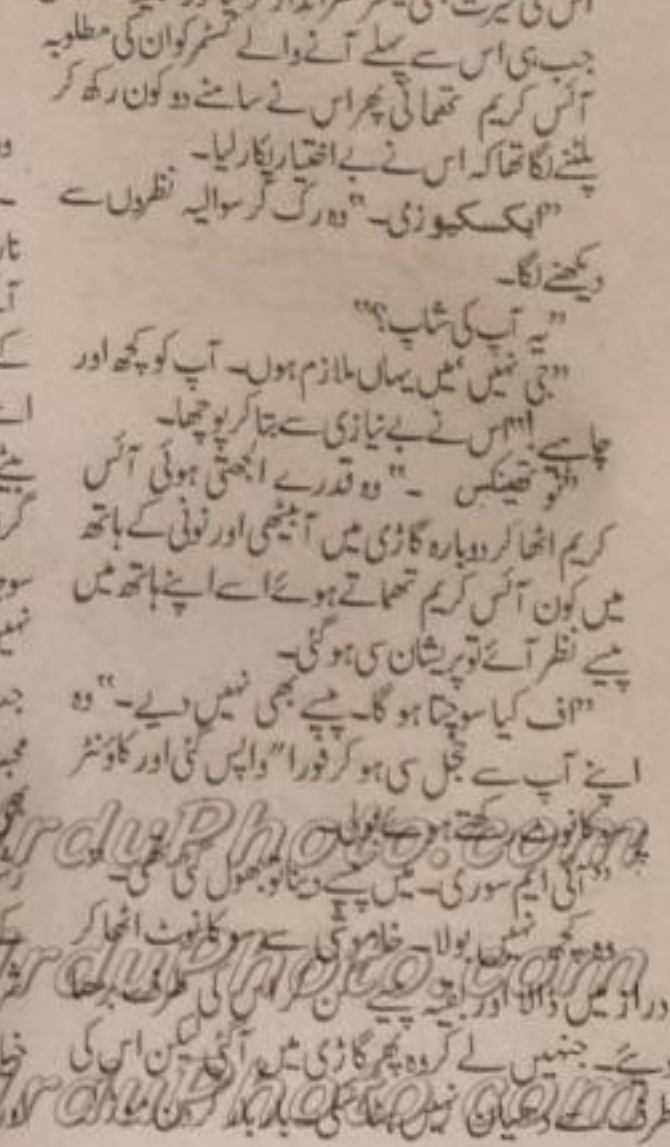 جب ہی اس سے پہلے آنے والے کسٹمر کو ان کی مطلوبہ
آئس کریم تھمائی پھر اس نے سامنے دو کون رکھ کر
پلٹنے لگا تھا کہ اس نے بے اختیار پکار لیا۔
"ایکسکیوزی۔" وہ رک کر سوالیہ نظروں سے
دیکھنے لگا۔
"یہ آپ کی شاپ؟"
"جی نہیں، میں یہاں ملازم ہوں۔ آپ کو کچھ اور
چاہیے!" اس نے بے نیازی سے بتا کر پوچھا۔
"نو تھینکس ۔" وہ قدرے الجھتی ہوئی آئس
کریم اٹھا کر دوبارہ گاڑی میں آ بیٹھی اور نونی کے ہاتھ
میں کون آئس کریم تھماتے ہوئے اسے اپنے ہاتھ میں
پیسے نظر آئے تو پریشان سی ہو گئی۔
"اف کیا سوچتا ہو گا۔ پیسے بھی نہیں دیے۔" وہ
اپنے آپ سے خجل سی ہو کر فورا" واپس گئی اور کاؤنٹر
پر سو کا نوٹ رکھتے ہوئے بولی۔
"آئی ایم سوری۔ میں پیسے دینا تو بھول گئی تھی۔"
وہ کچھ نہیں بولا۔ خاموشی سے سو کا نوٹ اٹھا کر
دراز میں ڈالا اور بقیہ پیسے گن کر اس کی طرف بڑھا
دیئے۔ جنہیں لے کر وہ پھر گاڑی میں آ گئی لیکن اس کی
طرف سے دھیان نہیں ہٹا سکی۔ بار بار
UrduPhoto.com
UrduPhoto.com
UrduPhoto.com